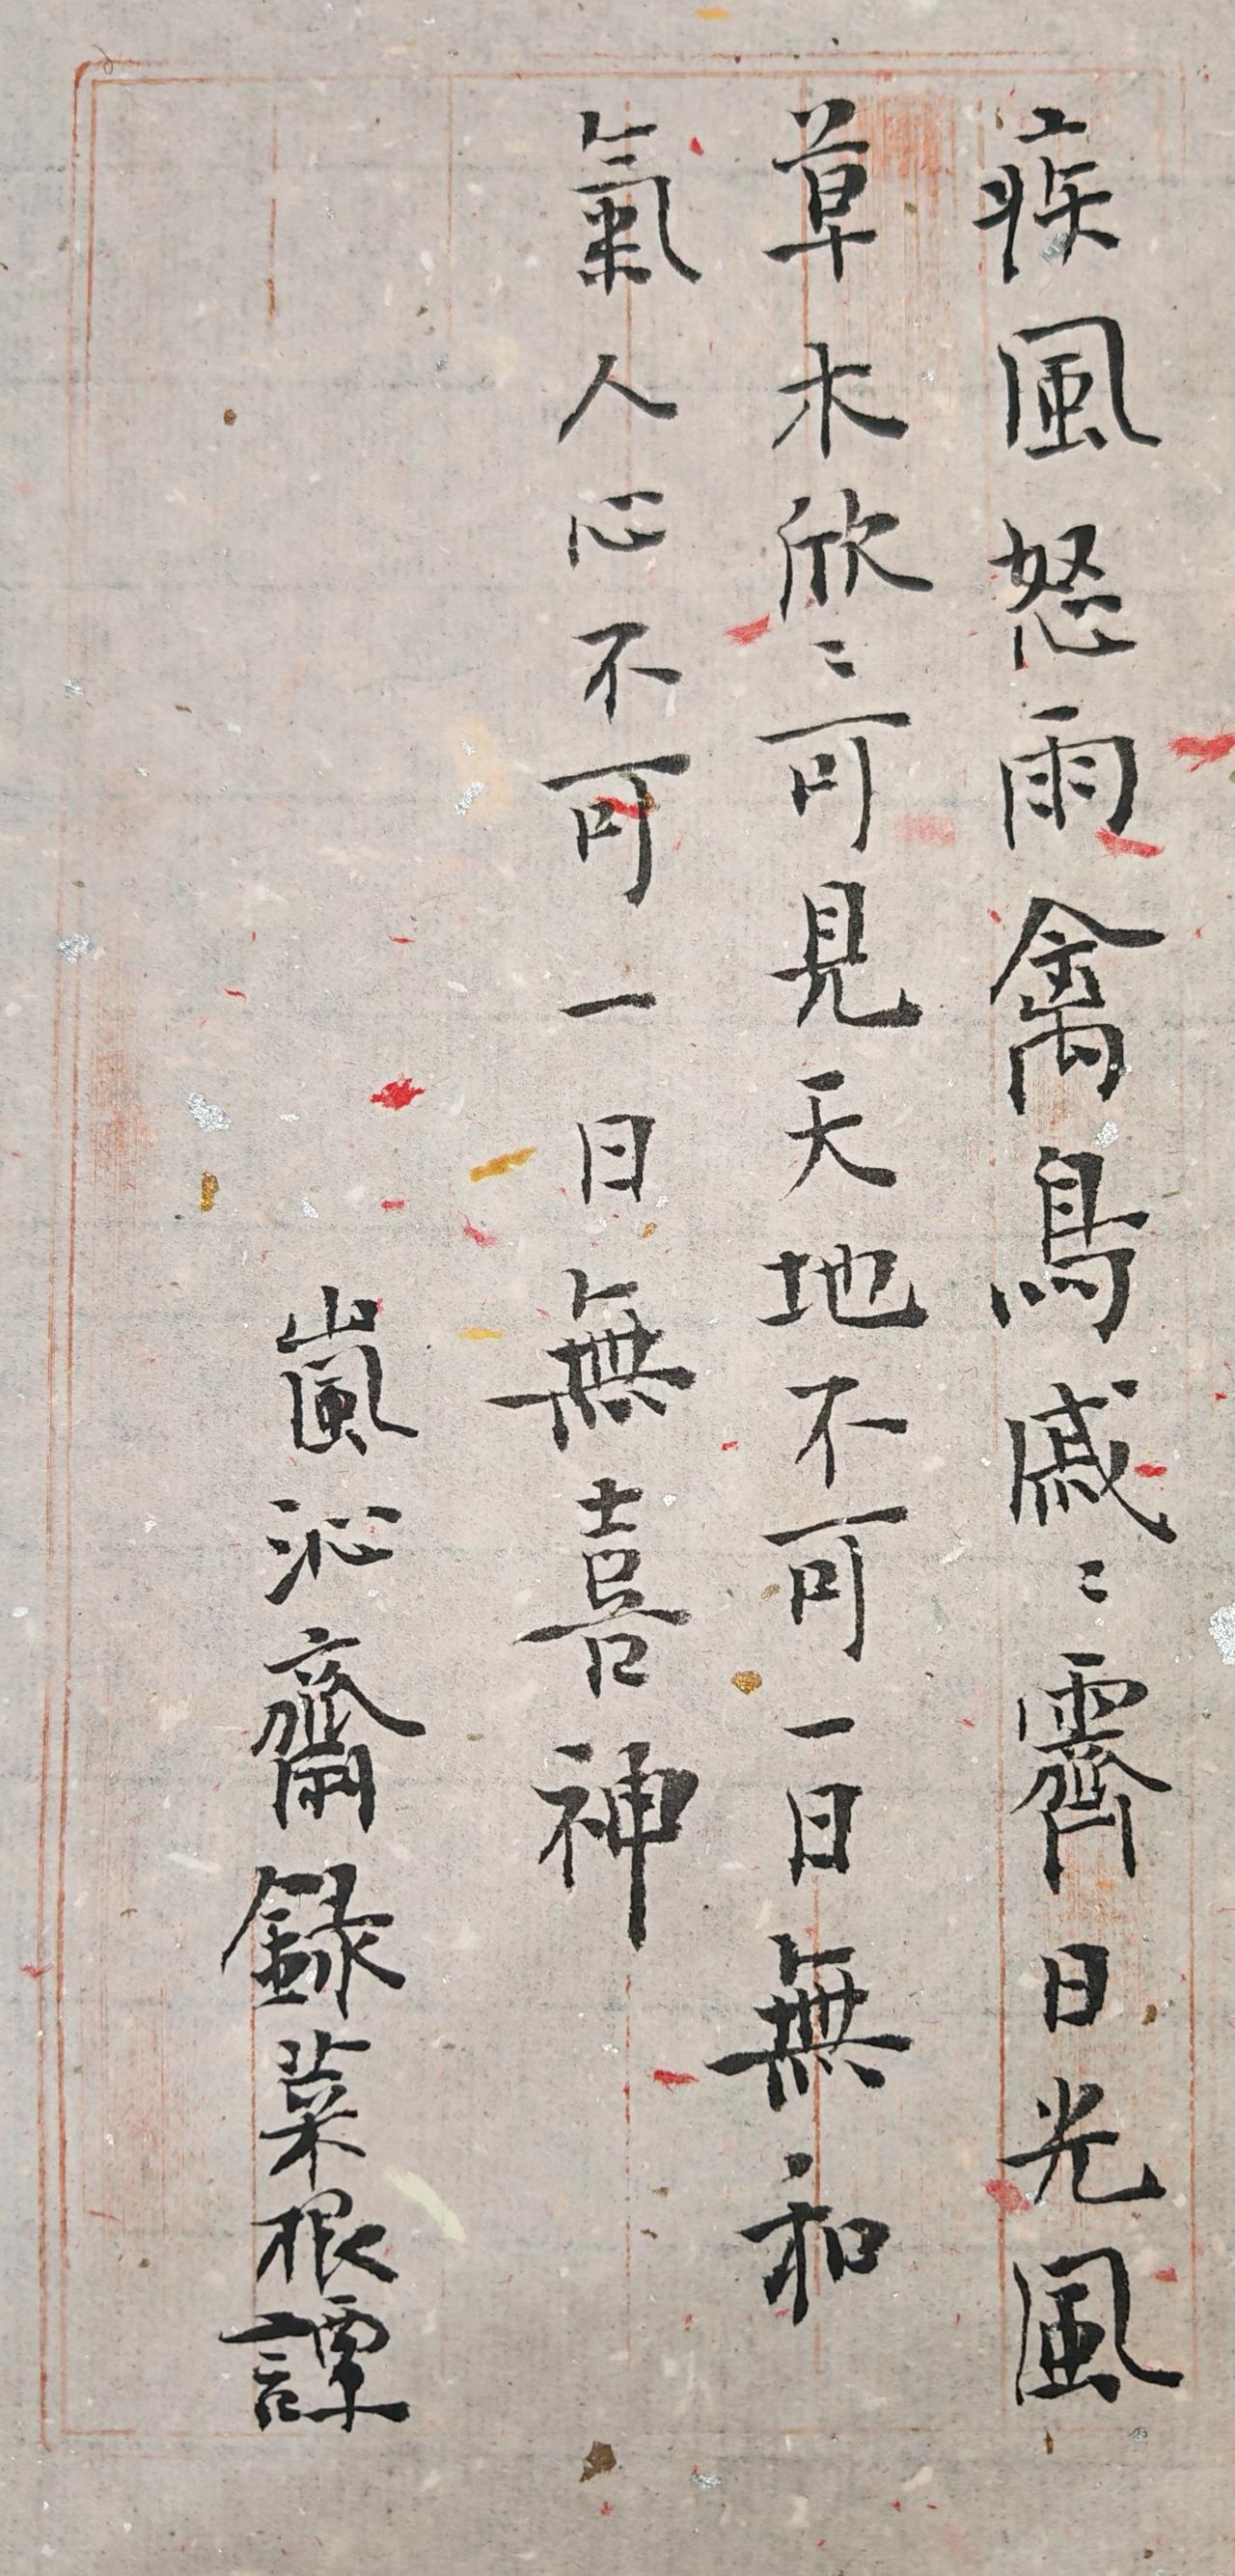 疾風怒雨禽鳥戚〻霽日光風
草木欣〻可見天地不可一日無和
氣人心不可一日無喜神
嵐沁齋錄菜根譚